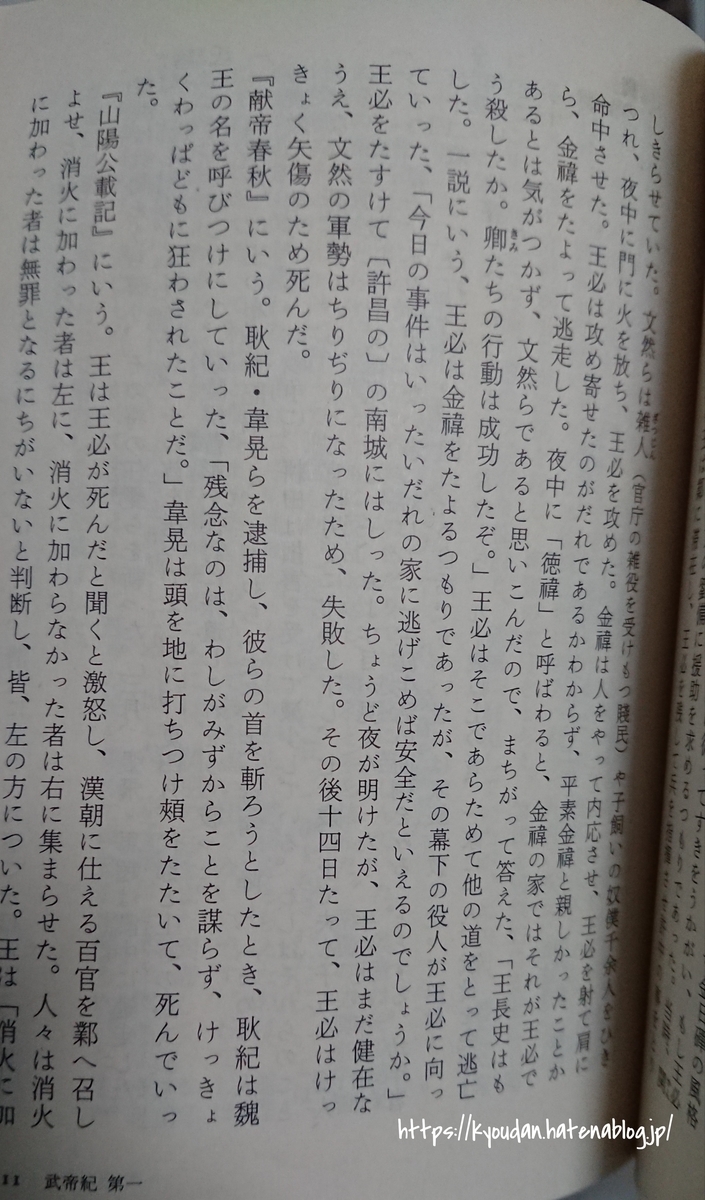 しきらせていた。文然らは雑人（官庁の雑役を受けもつ賤民）や子飼いの奴僕千余人をひき
つれ、夜中に門に火を放ち、王必を攻めた。金禕は人をやって内応させ、王必を射て肩に
命中させた。王必は攻め寄せたのがだれであるかわからず、平素金禕と親しかったことか
ら、金禕をたよって逃走した。夜中に「徳禕」と呼ばわると、金禕の家ではそれが王必で
あるとは気がつかず、文然らであると思いこんだので、まちがって答えた、「王長史はも
う殺したか。卿たちの行動は成功したぞ。」王必はそこであらためて他の道をとって逃亡
した。一説にいう、王必は金禕をたよるつもりであったが、その幕下の役人が王必に向っ
ていった、「今日の事件はいったいだれの家に逃げこめば安全だといえるのでしょうか。」
王必をたすけて〔許昌の〕の南城にはしった。ちょうど夜が明けたが、王必はまだ健在な
うえ、文然の軍勢はちりぢりになったため、失敗した。その後十四日たって、王必はけっ
きょく矢傷のため死んだ。
『献帝春秋』にいう。耿紀・韋晃らを逮捕し、彼らの首を斬ろうとしたとき、耿紀は魏
王の名を呼びつけにしていった、「残念なのは、わしがみずからことを謀らず、けっきょ
くわっぱどもに狂わされたことだ。」韋晃は頭を地に打ちつけ頰をたたいて、死んでいっ
た。
『山陽公載記』にいう。王は王必が死んだと聞くと激怒し、漢朝に仕える百官を鄴へ召し
よせ、消火に加わった者は左に、消火に加わらなかった者は右に集まらせた。人々は消火
に加わった者は無罪となるにちがいないと判断し、皆、左の方についた。王は「消火に加
11 武帝紀 第一
https://kyoudan.hatenablog.jp/